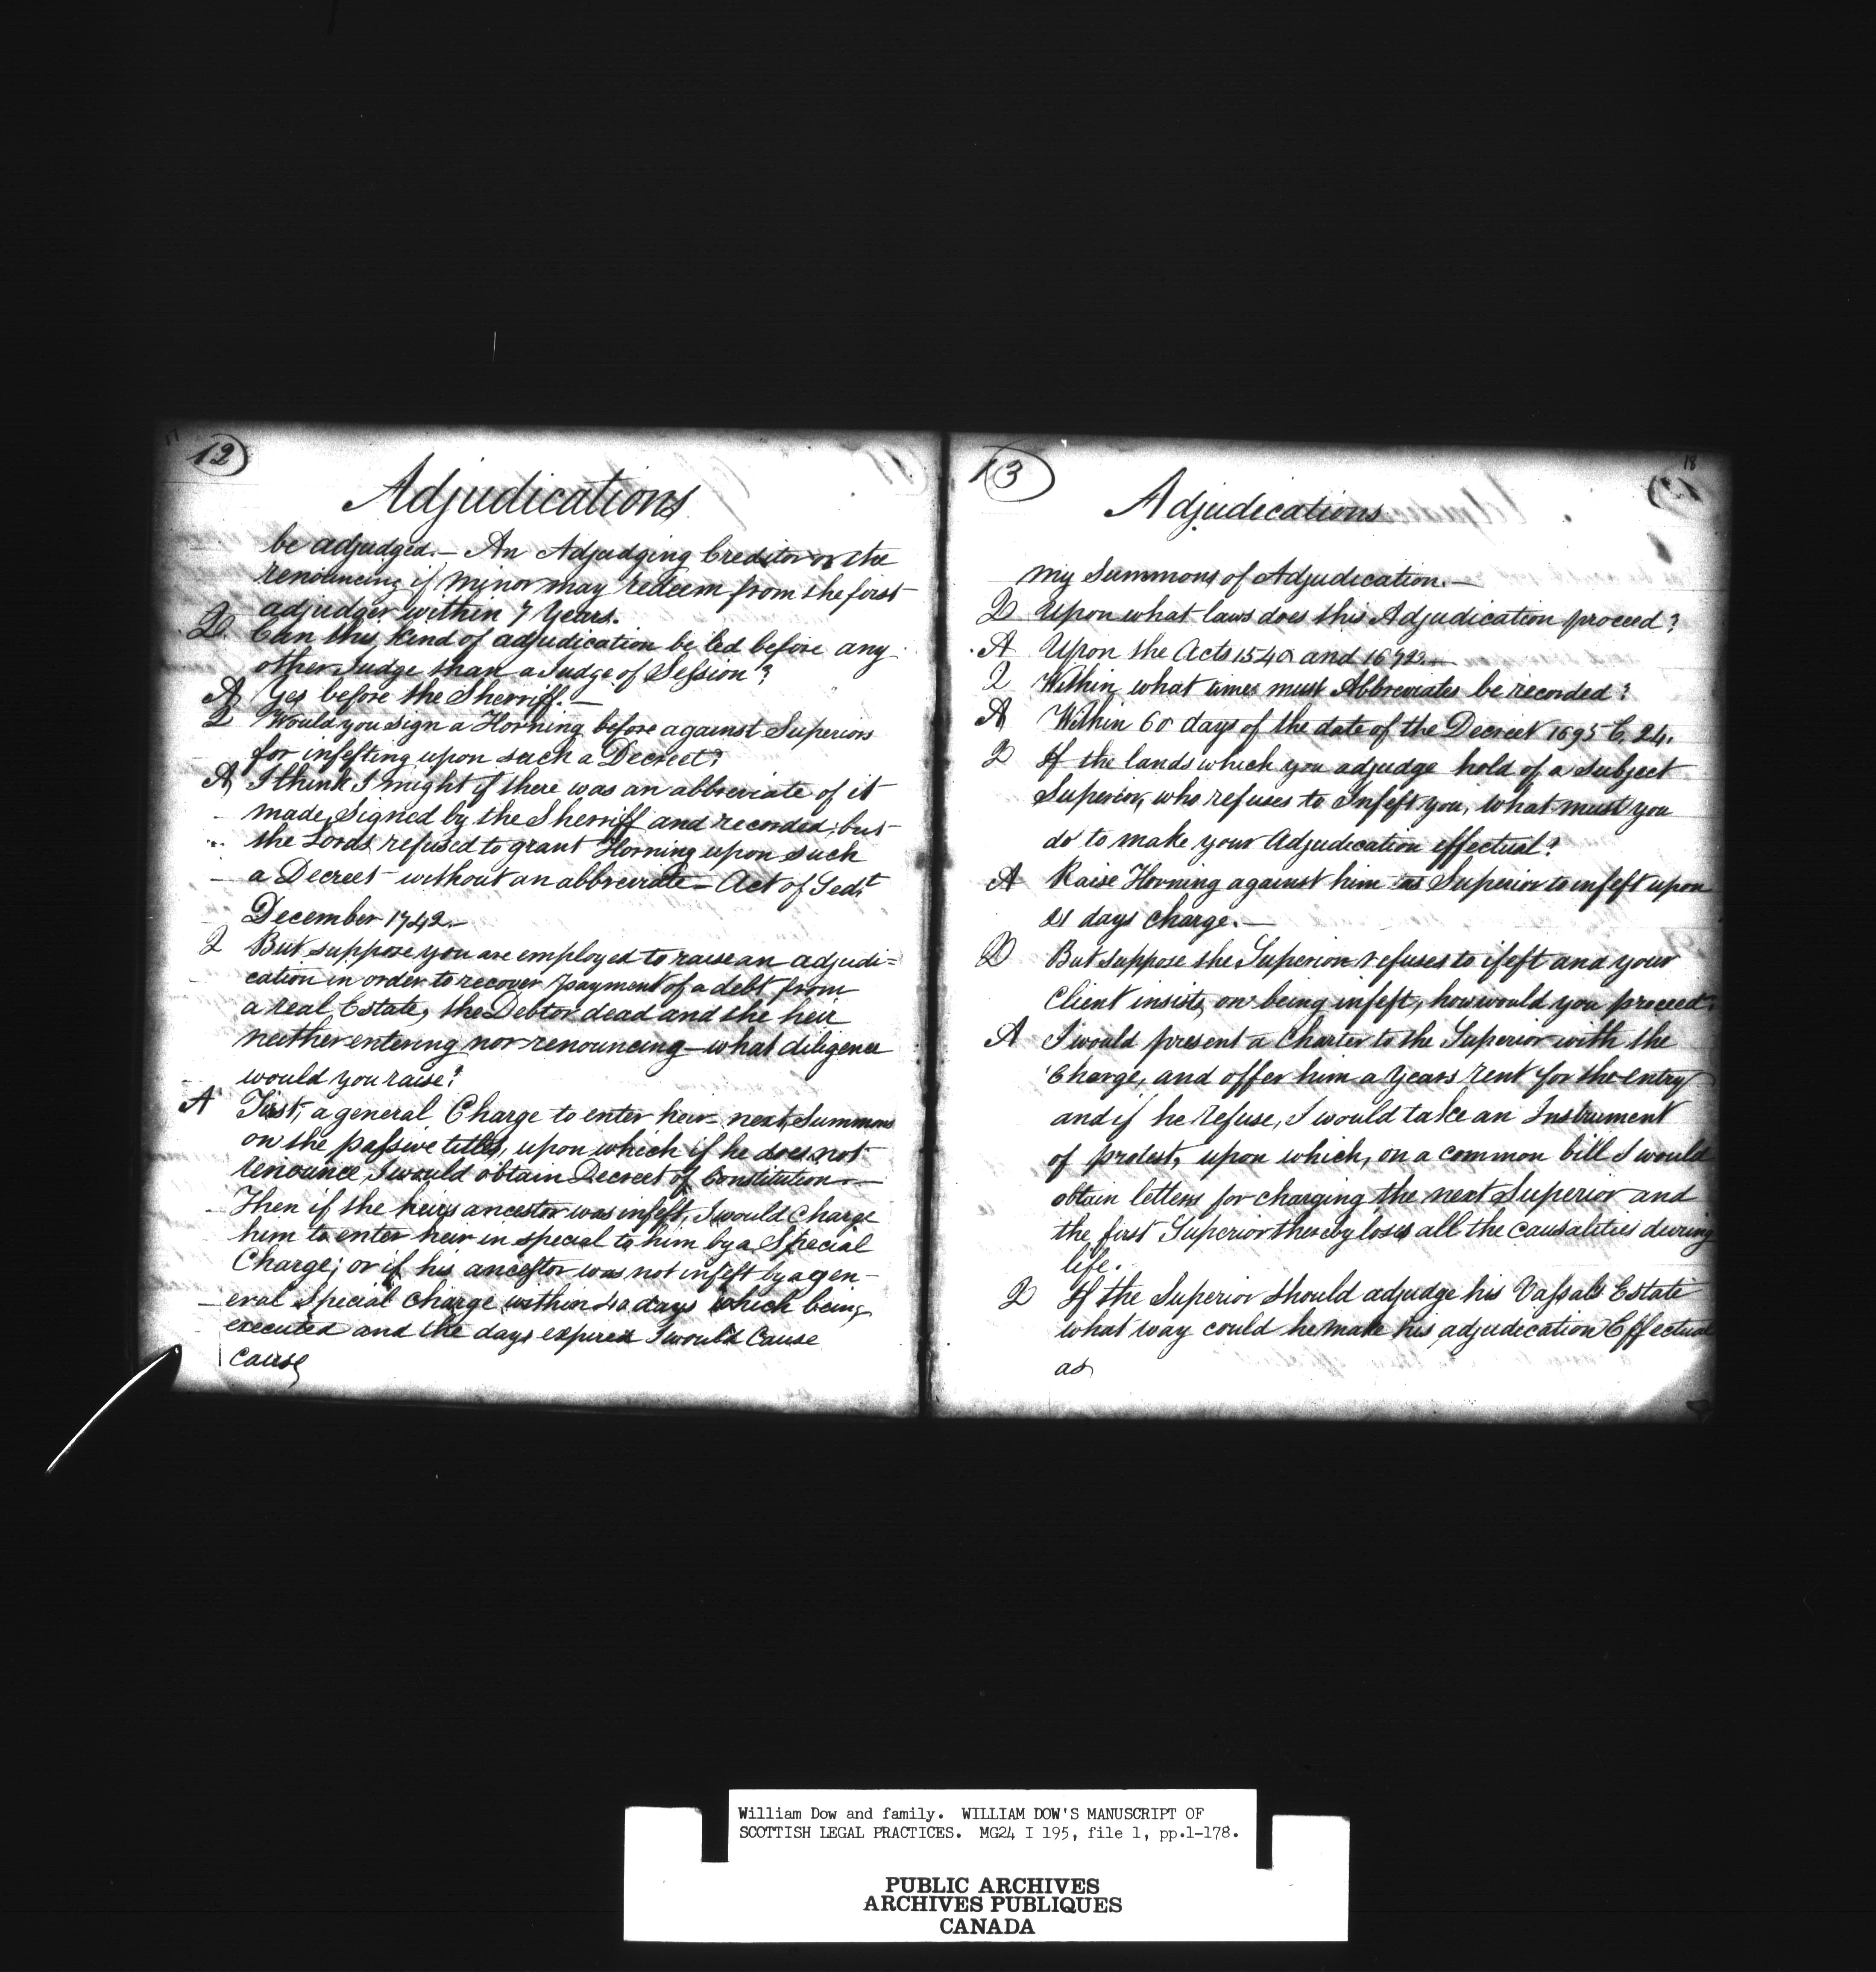 17
12
Adjudications
be adjudged.— An Adjudging Creditor or the
renouncing if minor may redeem from the first
adjudger within 7 Years.
Q. Can this kind of adjudication be led before any
other Judge than a Judge of Session?
A Yes before the Sherriff.—
Q Would you sign a Horning before against Superiors
for infefting upon such a Decreet?
A I think I might if there was an abbreviate of it
made, Signed by the Sherriff and recorded; but
the Lords refused to grant Horning upon such
a Decreet without an abbreviate — Act of Sedt
December 1742.—
Q But suppose you are employed to raise an adjudi=
cation in order to recover payment of a debt from
a real Estate, the Debtor dead and the heir
neither entering nor renouncing — what diligence
would you raise?
A First, a general Charge to enter heir - next, Summons
on the passive titles, upon which if he does not
renounce, I would obtain Decreet of Constitution.—
Then if the heirs ancestor was infeft, I would Charge
him to enter heir in special to him by a Special
Charge; or if his ancestor was not infeft by a gen-
eral Special Charge within 40 days which being
executed and the days expired I would Cause
cause
18
13
Adjudications
my Summons of Adjudication.—
Q Upon what laws does this Adjudication proceed?
A Upon the Acts 1540 and 1692.—
Q Within what times must Abbreviates be recorded?
A Within 60 days of the date of the Decreet 1695 C. 24.
Q If the lands which you adjudge hold of a Subject
Superior, who refuses to Infeft you, what must you
do to make your Adjudication effectual?
A Raise Horning against him as Superior to infeft upon
21 days charge.—
Q But suppose the Superior refuses to ifeft and your
Client insists on being infeft, how would you proceed?
A I would present a Charter to the Superior with the
Charge, and offer him a Years rent for the entry
and if he refuse, I would take an Instrument
of protest, upon which, on a common bill I would
obtain letters for charging the next Superior and
the first Superior thereby loses all the Causalities during
life.
Q If the Superior should adjudge his Vassals Estate
what way could he make his adjudication Effectual
as
William Dow and family. WILLIAM DOW'S MANUSCRIPT OF
SCOTTISH LEGAL PRACTICES. MG24 I 195, file 1, pp.1-178.
PUBLIC ARCHIVES
ARCHIVES PUBLIQUES
CANADA